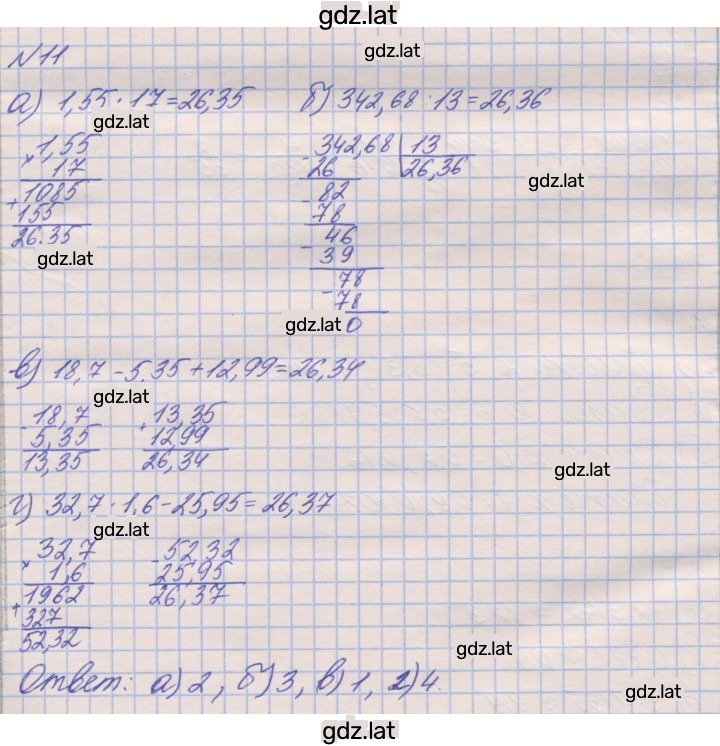 gdz.lat
№11
gdz.lat
а) 1,55 · 17 = 26,35
б) 342,68 : 13 = 26,36
gdz.lat
× 1,55
17
1085
+ 155
26.35
gdz.lat
342,68 | 13
- 26
26,36
gdz.lat
- 82
78
- 46
39
- 78
78
0
gdz.lat
в) 18,7 - 5,35 + 12,99 = 26,34
gdz.lat
- 18,7
5,35
13,35
+ 13,35
12,99
26,34
gdz.lat
г) 32,7 · 1,6 - 25,95 = 26,37
gdz.lat
× 32,7
1,6
1962
+ 327
52,32
- 52,32
25,95
26,37
gdz.lat
Ответ: а) 2, б) 3, в) 1, г) 4.
gdz.lat
gdz.lat